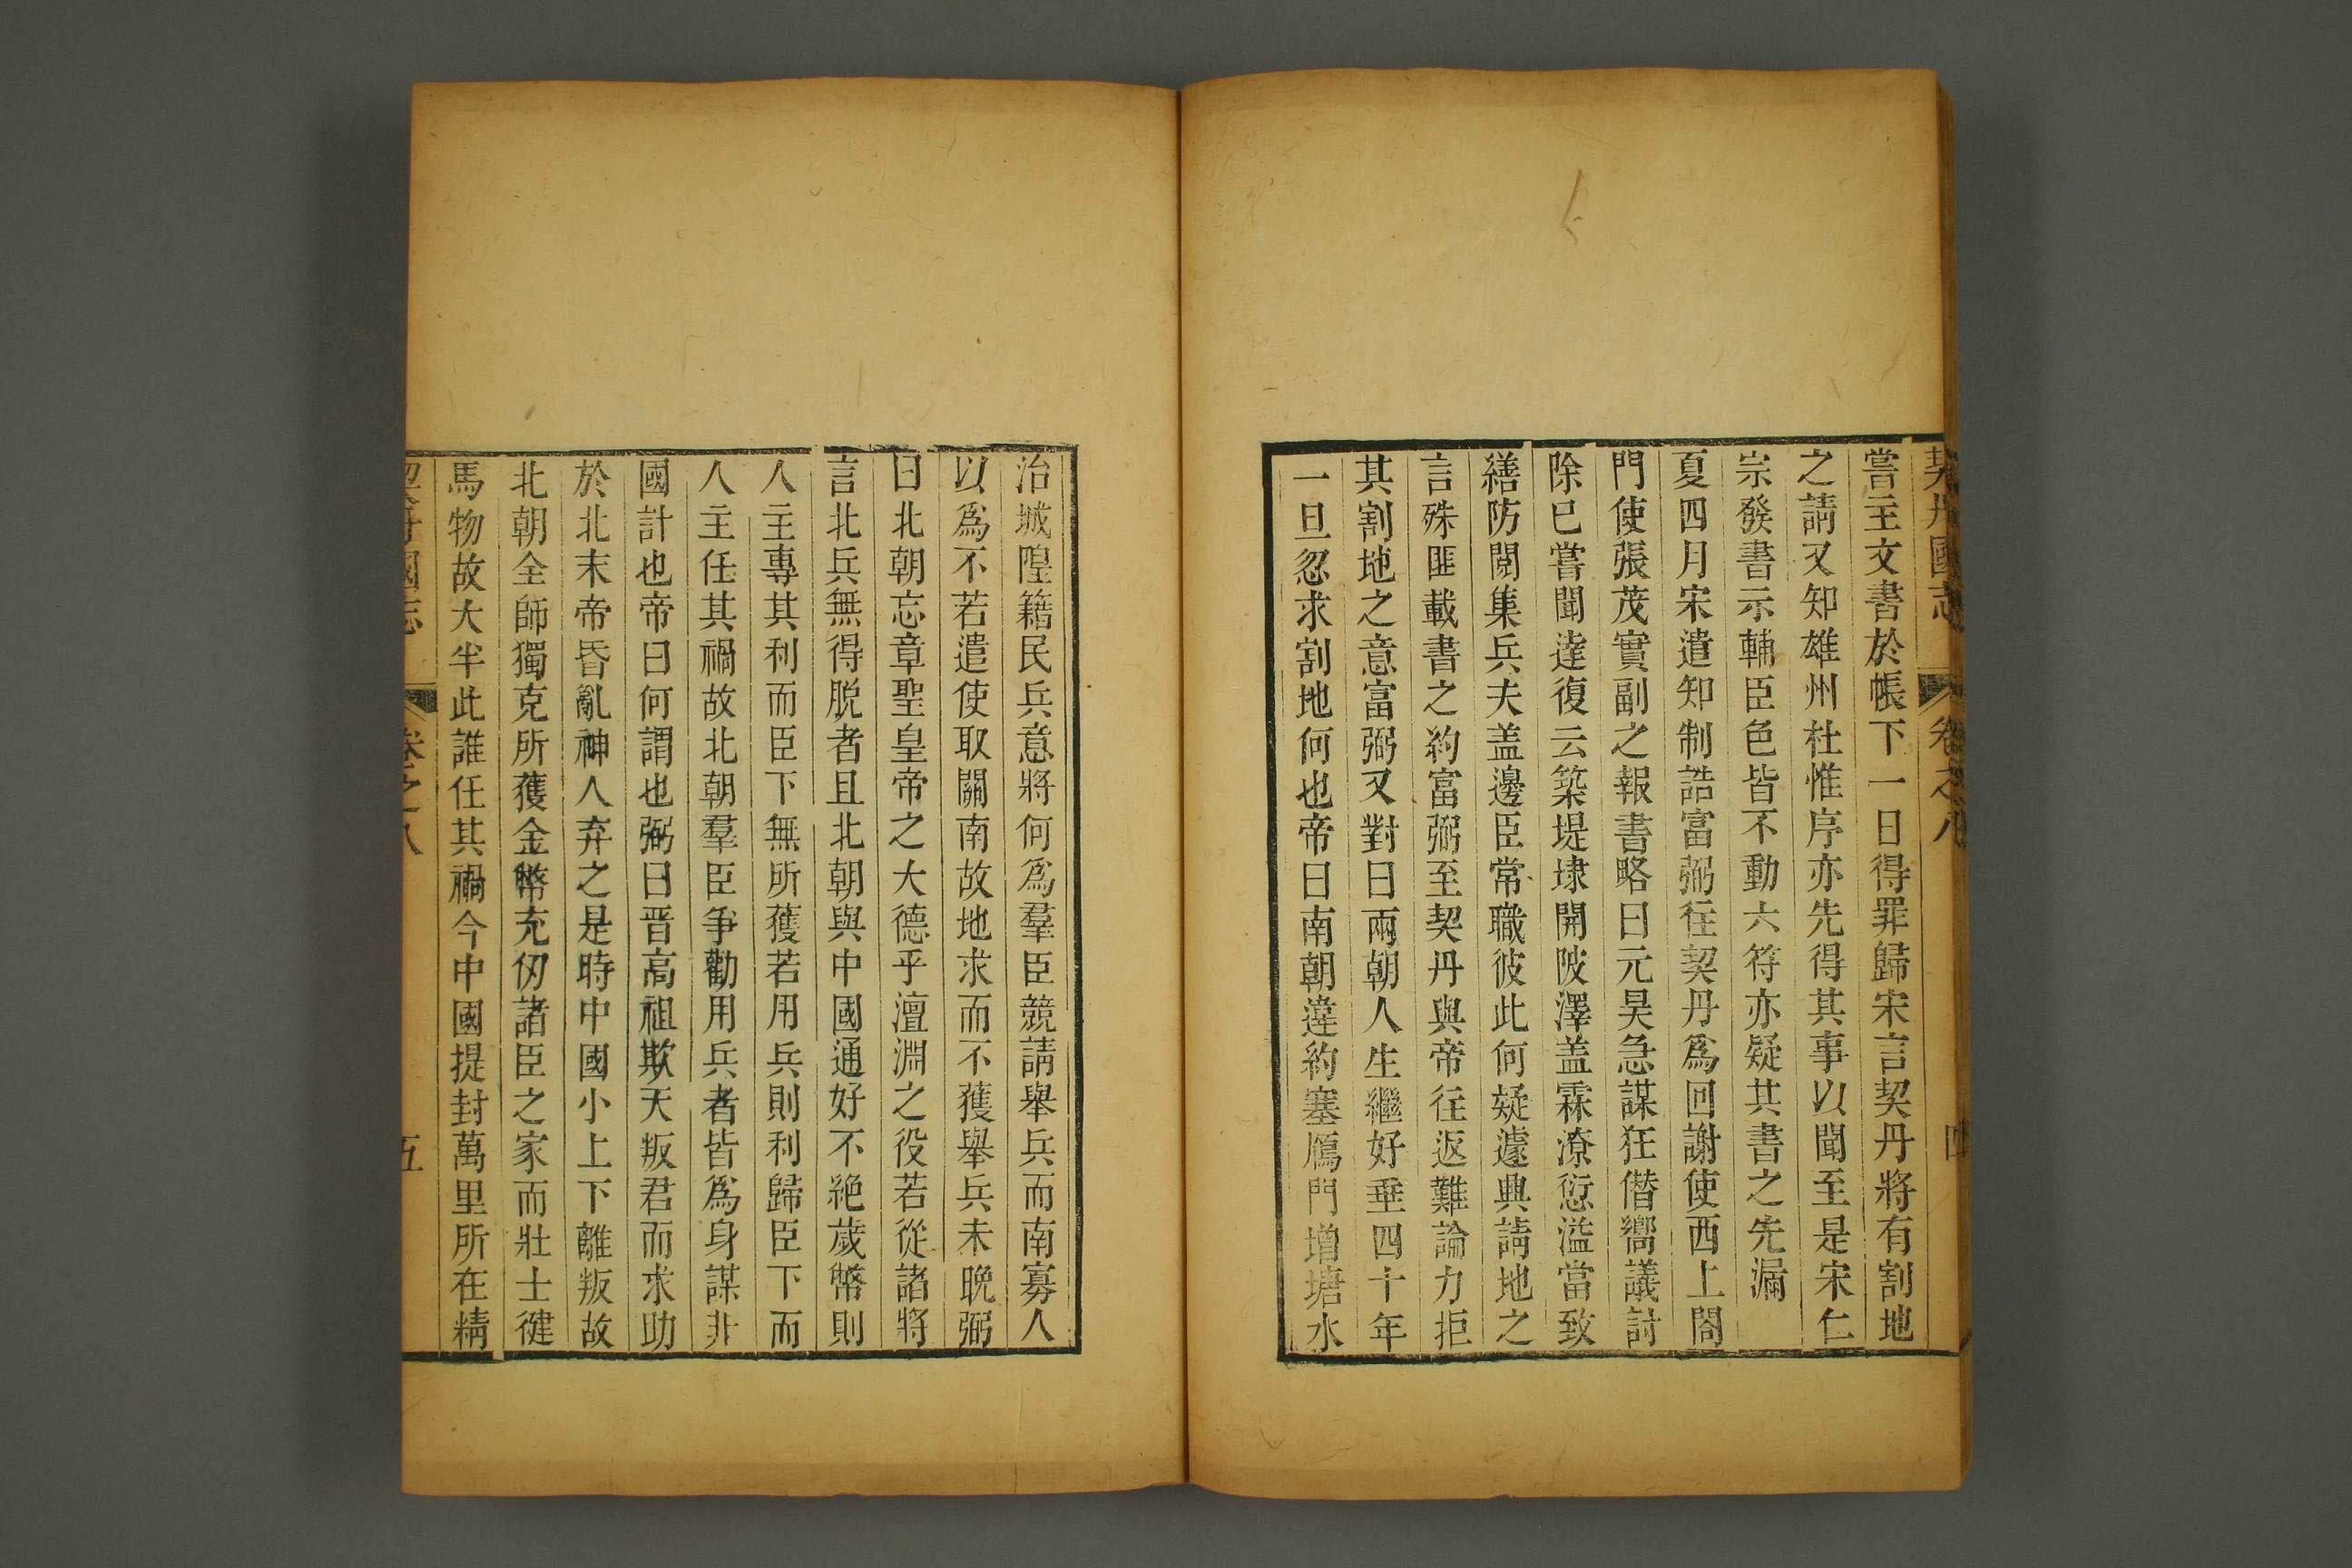 契丹國志 卷之八 四
嘗主文書於帳下一日得罪歸宋言契丹將有割地
之請又知雄州杜惟序亦先得其事以聞至是宋仁
宗發書示輔臣色皆不動六符亦疑其書之先漏
夏四月宋遣知制誥富弼往契丹爲回謝使西上閤
門使張茂實副之報書略曰元昊急謀狂僭嚮議討
除已嘗聞達復云築堤埭開陂澤盖霖潦愆溢當致
繕防閱集兵夫盖邊臣常職彼此何疑遽典請地之
言殊匪載書之約富弼至契丹與帝往返難論力拒
其割地之意富弼又對曰兩朝人生繼好垂四十年
一旦忽求割地何也帝曰南朝違約塞鴈門增塘水
治城隍籍民兵意將何爲羣臣競請舉兵而南寡人
以爲不若遣使取關南故地求而不獲舉兵未晚弼
曰北朝忘章聖皇帝之大德乎澶淵之役若從諸將
言北兵無得脱者且北朝與中國通好不絶歲幣則
人主專其利而臣下無所獲若用兵則利歸臣下而
人主任其禍故北朝羣臣爭勸用兵者皆爲身謀非
國計也帝曰何謂也弼曰晋高祖欺天叛君而求助
於北末帝昏亂神人弃之是時中國小上下離叛故
北朝全師獨克所獲金幣充仞諸臣之家而壯士健
馬物故大半此誰任其禍今中國提封萬里所在精
契丹國志 卷之八 五